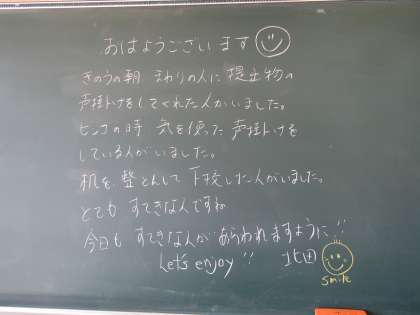 おはようございます
きのうの朝 まわりの人に提出物の
声掛けをしてくれた人がいました。
ピンチの時 気を使った声掛けを
している人がいました。
机を整とんして下校した人がいました。
とても すてきな人ですね
今日も すてきな人があらわれますように!!
Let's enjoy!! 北田
smile